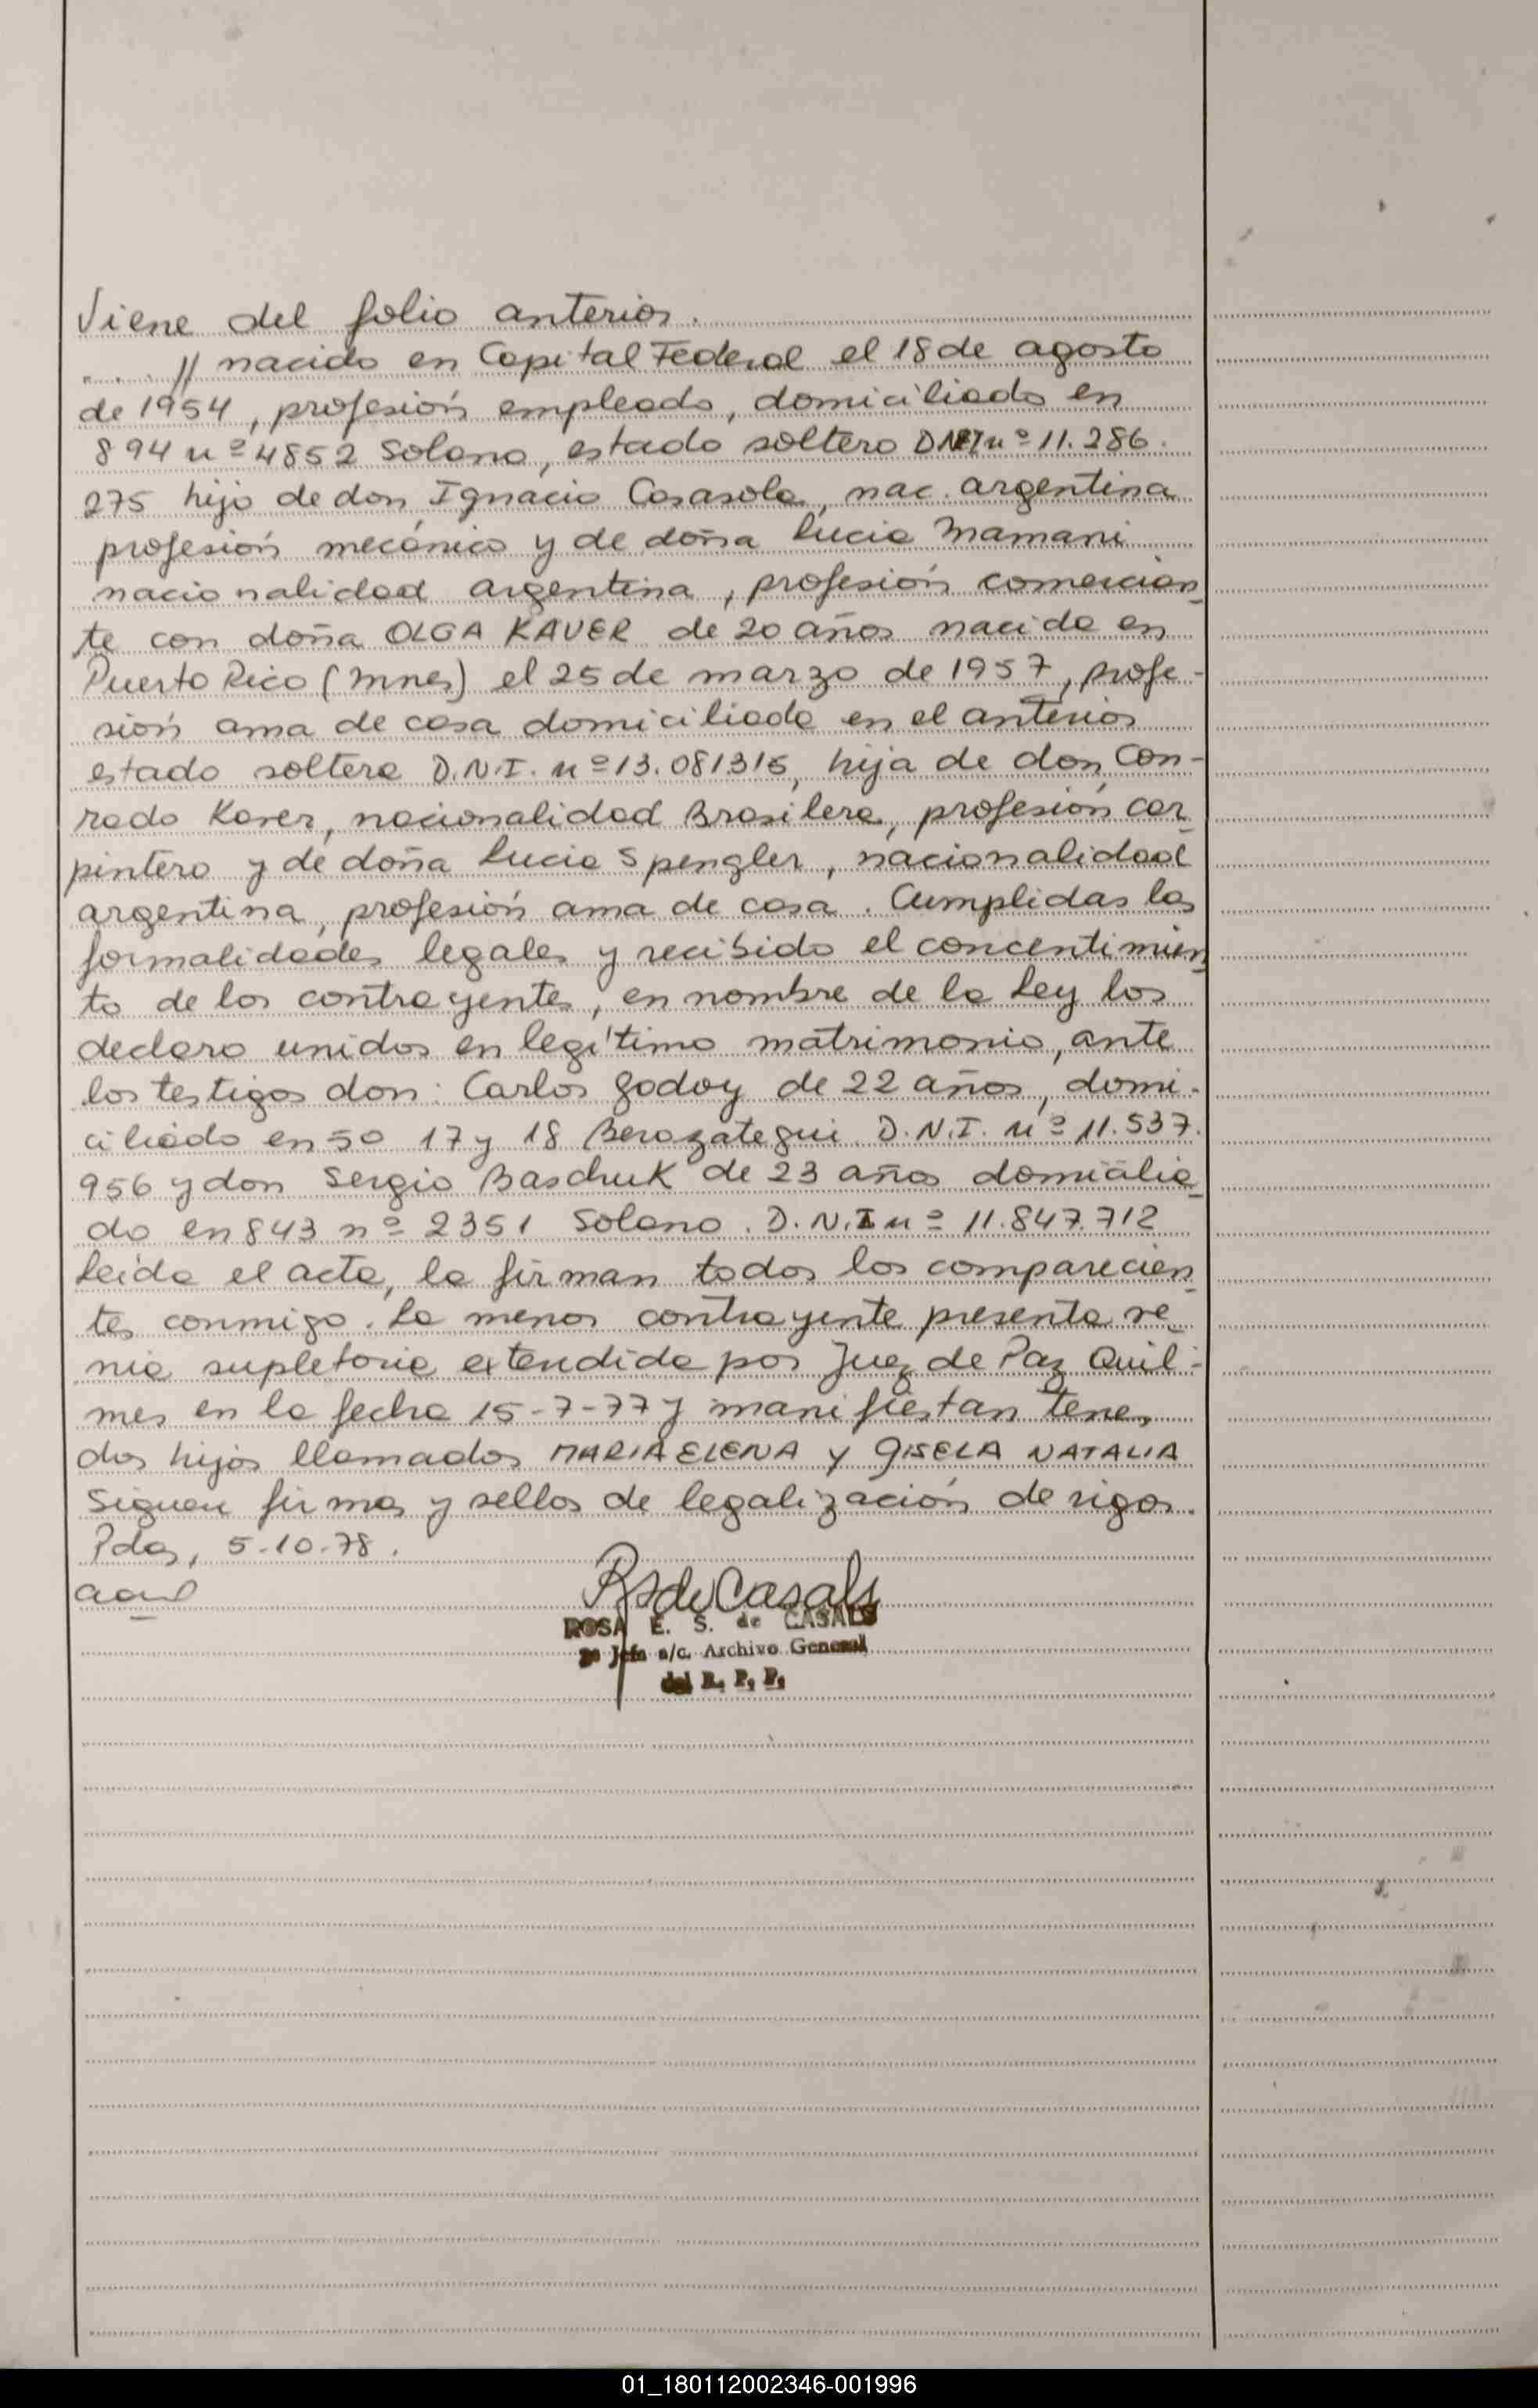 Viene del folio anterior.
// nacido en Capital Federal el 18 de agosto
de 1954, profesión empleado, domiciliado en
894 nº 4852 Solano, estado soltero DNI nº 11.286.
275 hijo de don Ignacio Casasola, nac. argentina
profesión mecánico y de doña Lucia Mamani
nacionalidad argentina, profesión comercian
te con doña OLGA KAVER de 20 años nacida en
Puerto Rico (Mnes) el 25 de marzo de 1957, profe-
sión ama de casa domiciliada en el anterior
estado soltera D.N.I. nº 13.081316, hija de don Con-
rado Kaver, nacionalidad Brasilera, profesión car
pintero y de doña Lucia Spengler, nacionalidad
argentina, profesión ama de casa. Cumplidas las
formalidades legales y recibido el concentimien
to de los contrayentes, en nombre de la Ley los
declaro unidos en legítimo matrimonio, ante
los testigos don: Carlos Godoy de 22 años, domi-
ciliado en 50 17 y 18 Berazategui. D.N.I. nº 11.537.
956 y don Sergio Baschuk de 23 años domicilia
do en 843 nº 2351 Solano. D.N.I nº 11.847.712
Leida el acta, la firman todos los comparecien
tes conmigo. La menor contrayente presenta ve
nia supletoria extendida por Juez de Paz Quil-
mes en la fecha 15-7-77 y manifiestan tener
dos hijos llamados MARIA ELENA y GISELA NATALIA
Siguen firmas y sellos de legalización de rigor.
Pdas, 5-10-78.
RSdeCasals
ROSA E. S. de CASALS
2º Jefa a/c. Archivo General
del R. P. P.
01_180112002346-001996